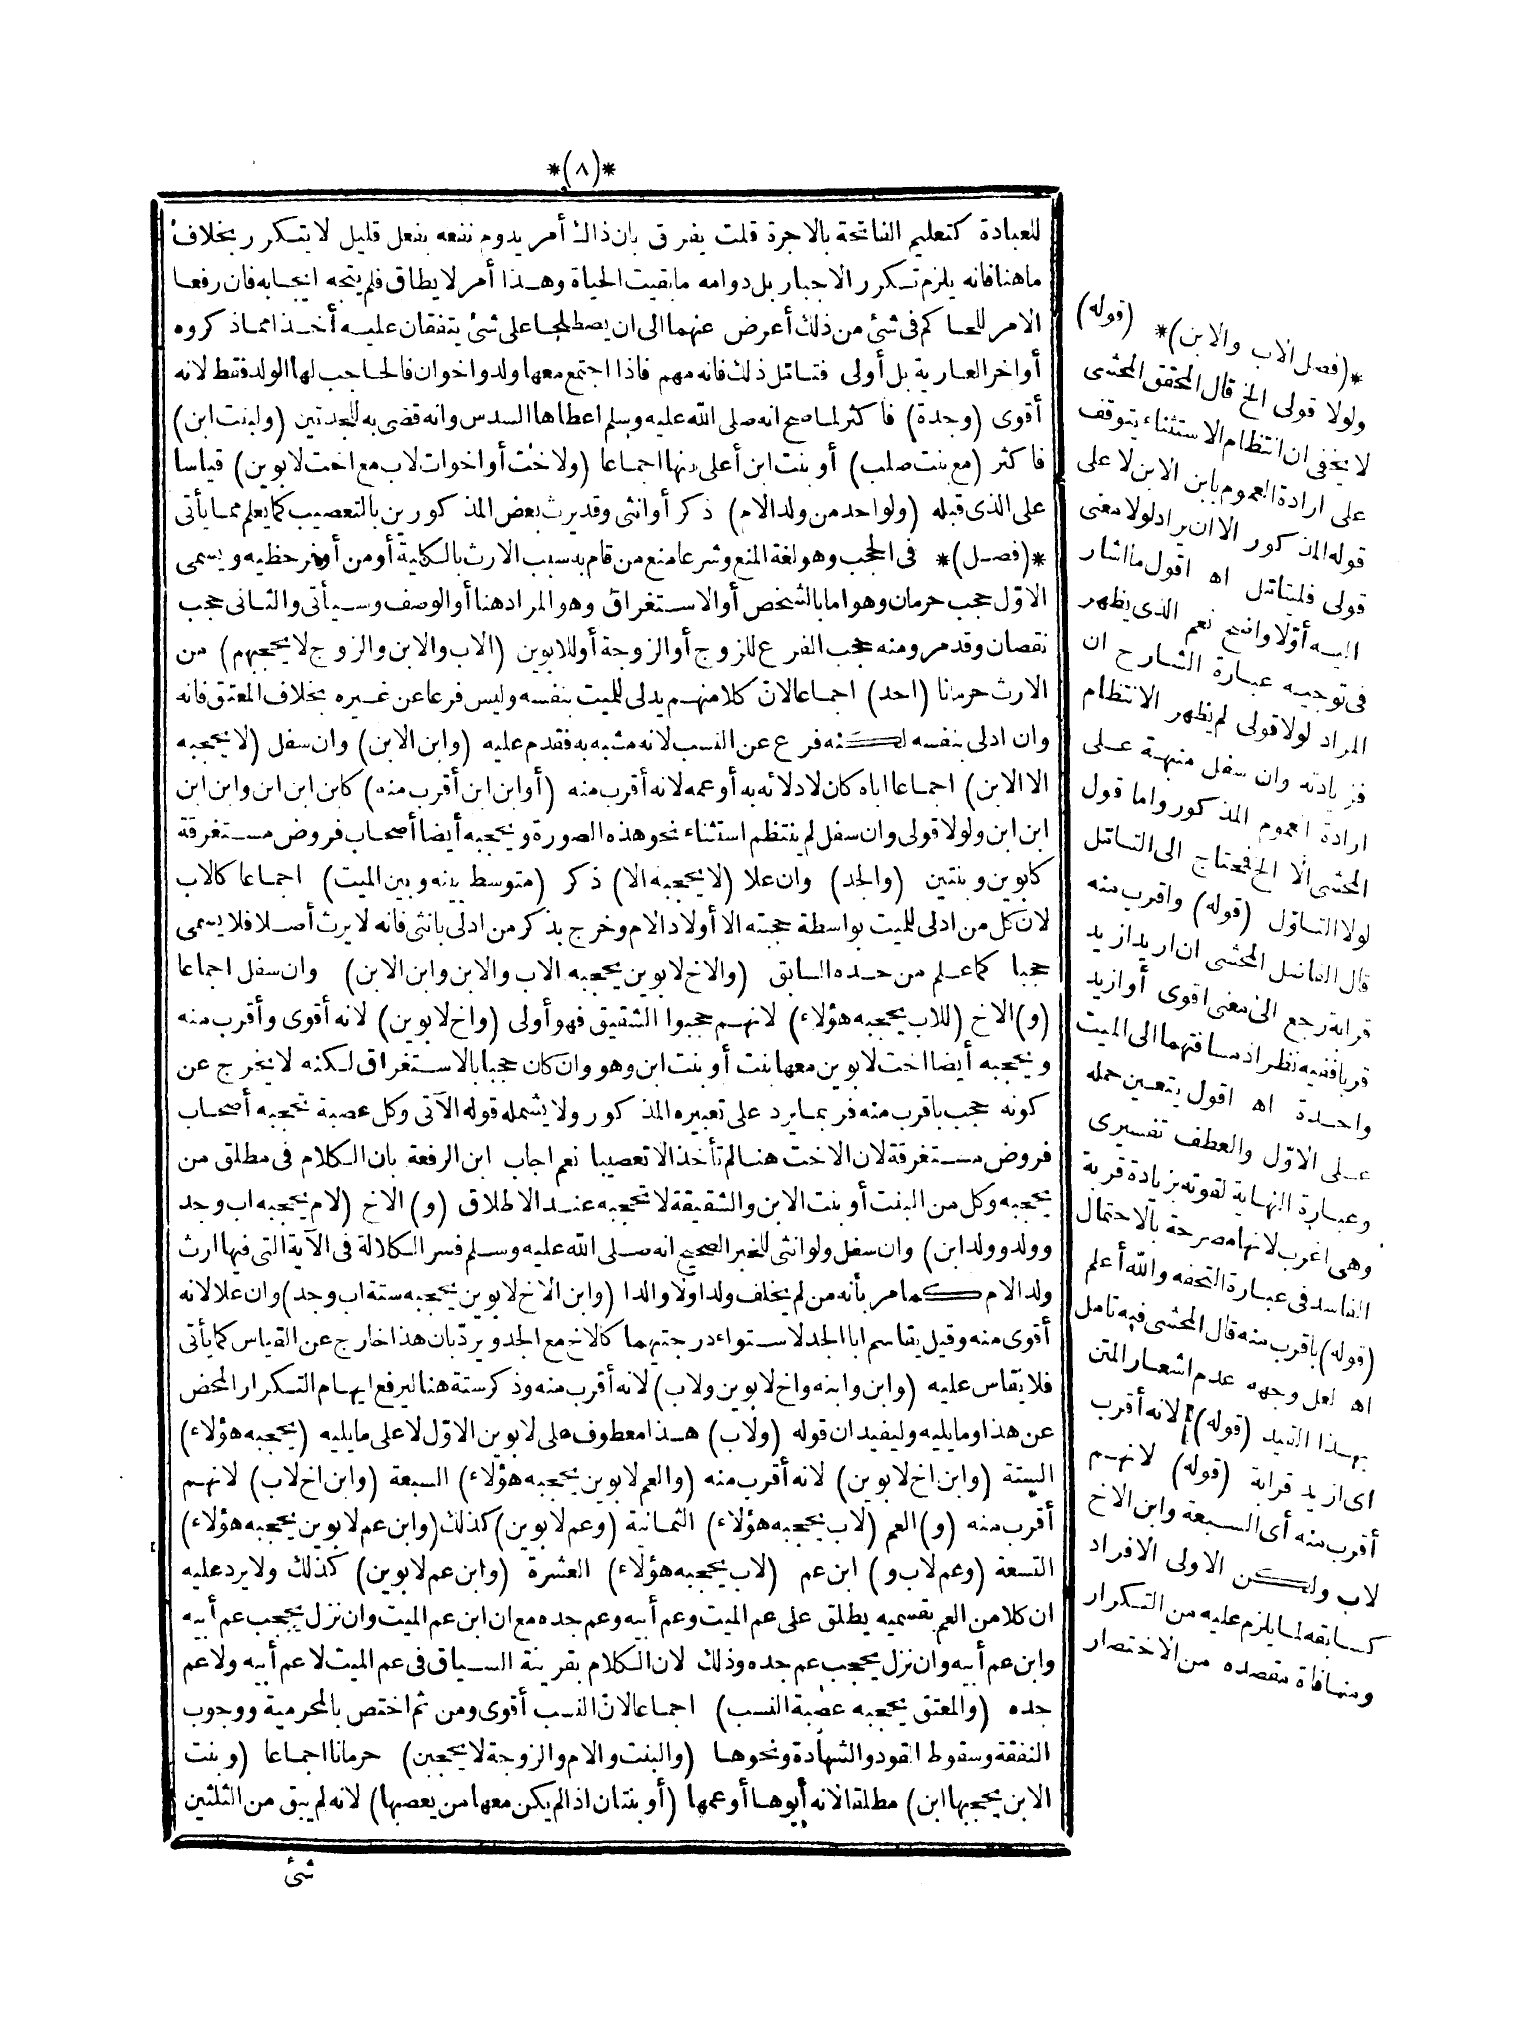 *(٨)*
للعبادة كتعليم الفاتحة بالاجرة قلت يفرق بان ذاك أمر يدوم نفعه بفعل قليل لا يتكرر بخلاف
ما هنا فانه يلزم تكرر الاجبار بل دوامه ما بقيت الحياة وهذا أمر لا يطاق فلم يتجه ايجابه فان رفعا
الامر للحاكم فى شئ من ذلك أعرض عنهما الى ان يصطلحا على شئ يتفقان عليه أخذا مما ذكروه
أواخر العارية بل أولى فتامّل ذلك فانه مهم فاذا اجتمع معها ولد واخوان فالحاجب لها الولد فقط لانه
أقوى (وجدة) فأكثر لما صح انه صلى الله عليه وسلم اعطاها السدس وانه قضى به للجدتين (ولبنت ابن)
فاكثر (مع بنت صلب) أو بنت ابن أعلى منها اجماعا (ولاخت أو اخوات لاب مع اخت لابوين) قياسا
على الذى قبله (ولواحد من ولد الام) ذكر أو انثى وقد يرث بعض المذكورين بالتعصيب كما يعلم مما يأتى
*(فصل)* فى الحجب وهو لغة المنع وشرعا منع من قام به سبب الارث بالكلية أو من أوفر حظيه ويسمى
الاوّل حجب حرمان وهو اما بالشخص أو الاستغراق وهو المراد هنا أو الوصف وسيأتى والثانى حجب
نقصان وقد مر ومنه حجب الفرع للزوج أو الزوجة أو للابوين (الاب والابن والزوج لا يحجبهم) من
الارث حرمانا (احد) اجماعا لانّ كلا منهم يدلى للميت بنفسه وليس فرعا عن غيره بخلاف المعتق فانه
وان ادلى بنفسه لكنه فرع عن النسب لانه مشبه به فقدم عليه (وابن الابن) وان سفل (لا يحجبه
الا الابن) اجماعا اباه كان لادلائه به أو عمه لانه أقرب منه (أو ابن ابن أقرب منه) كابن ابن ابن وابن ابن
ابن ابن ولولا قولى وان سفل لم ينتظم استثناء نحو هذه الصورة ويحجبه أيضا أصحاب فروض مستغرقة
كابوين وبنتين (والجد) وان علا (لا يحجبه الا) ذكر (متوسط بينه وبين الميت) اجماعا كالاب
لان كل من ادلى للميت بواسطة حجبته الا أولاد الام وخرج بذكر من ادلى بانثى فانه لا يرث أصلا فلا يسمى
حجبا كما علم من حده السابق (والاخ لابوين يحجبه الاب والابن وابن الابن) وان سفل اجماعا
(و) الاخ (للاب يحجبه هؤلاء) لانهم حجبوا الشقيق فهو أولى (واخ لابوين) لانه أقوى وأقرب منه
ويحجبه أيضا اخت لابوين معها بنت أو بنت ابن وهو وان كان حجبا بالاستغراق لكنه لا يخرج عن
كونه حجب باقرب منه فربما يرد على تعبيره المذكور ولا يشمله قوله الآتى وكل عصبة تحجبه أصحاب
فروض مستغرقة لان الاخت هنا لم تأخذ الا تعصيبا نعم اجاب ابن الرفعة بان الكلام فى مطلق من
يحجبه وكل من البنت أو بنت الابن والشقيقة لا تحجبه عند الاطلاق (و) الاخ (لام يحجبه اب وجد
وولد وولد ابن) وان سفل ولو انثى للخبر الصحيح انه صلى الله عليه وسلم فسر الكلالة فى الآية التى فيها ارث
ولد الام كما مر بأنه من لم يخلف ولدا ولا والدا (وابن الاخ لابوين يحجبه ستة اب وجد) وان علا لانه
أقوى منه وقيل يقاسم ابا الجد لاستواء درجتهما كالاخ مع الجد ويردّ بان هذا خارج عن القياس كما يأتى
فلا يقاس عليه (وابن وابنه واخ لابوين ولاب) لانه أقرب منه وذكر ستة هنا ليرفع ايهام التكرار المحض
عن هذا وما يليه وليفيد ان قوله (ولاب) هذا معطوف على لابوين الاوّل لا على ما يليه (يحجبه هؤلاء)
الستة (وابن اخ لابوين) لانه أقرب منه (والعم لابوين يحجبه هؤلاء) السبعة (وابن اخ لاب) لانهم
أقرب منه (و) العم (لاب يحجبه هؤلاء) الثمانية (وعم لابوين) كذلك (وابن عم لابوين يحجبه هؤلاء)
التسعة (وعم لاب و) ابن عم (لاب يحجبه هؤلاء) العشرة (وابن عم لابوين) كذلك ولا يرد عليه
ان كلا من العم بقسميه يطلق على عم الميت وعم أبيه وعم جده مع ان ابن عم الميت وان نزل يحجب عم أبيه
وابن عم أبيه وان نزل يحجب عم جده وذلك لان الكلام بقرينة السياق فى عم الميت لا عم أبيه ولا عم
جده (والمعتق يحجبه عصبة النسب) اجماعا لانّ النسب أقوى ومن ثم اختص بالمحرمية ووجوب
النفقة وسقوط القود والشهادة ونحوها (والبنت والام والزوجة لا يحجبن) حرمانا اجماعا (وبنت
الابن يحجبها ابن) مطلقا لانه أبوها أو عمها (أو بنتان اذا لم يكن معها من يعصبها) لانه لم يبق من الثلثين
شئ
*(فصل الاب والابن)* (قوله)
ولولا قولى الخ قال المحقق المحشى
لا يخفى ان انتظام الاستثناء يتوقف
على ارادة العموم بابن الابن لا على
قوله المذكور الا ان يراد لولا معنى
قولى فليتامّل اه اقول ما اشار
اليه أوّلا واضح نعم الذى يظهر
فى توجيه عبارة الشارح ان
المراد لولا قولى لم يظهر الانتظام
فزيادته وان سفل منبهة على
ارادة العموم المذكور واما قول
المحشى الا الخ فمحتاج الى التامّل
لولا التاوّل (قوله) واقرب منه
قال الفاضل المحشى ان اريد ازيد
قرابة رجع الى معنى اقوى أو ازيد
قربا ففيه نظر اذ مسافتهما الى الميت
واحدة اه اقول يتعين حمله
على الاوّل والعطف تفسيرى
وعبارة النهاية لقوته بزيادة قربه
وهى اغرب لانها مصرحة بالاحتمال
الفاسد فى عبارة التحفه والله أعلم
(قوله) باقرب منه قال المحشى فيه تامل
اه لعل وجهه عدم اشعار المتن
بهذا القيد (قوله) لانه أقرب
اى ازيد قرابة (قوله) لانهم
أقرب منه أى السبعة وابن الاخ
لاب ولكن الاولى الافراد
كسابقه لما يلزم عليه من التكرار
ومنافاة مقصده من الاختصار